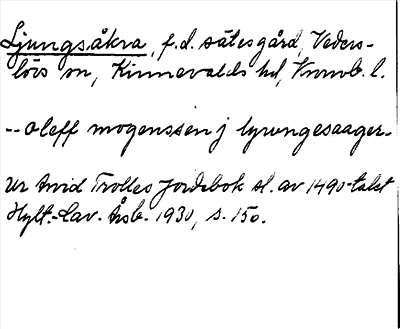 Ljungsåkra, f.d. sätesgård, Veders-
löfs sn, Kinnevalds hd, Kronob. l.
-- oleff mogenssen j lywngesaager.
Ur Arvid Trolles Jordebok sl. av 1490-talet
Hylt.-Cav. Årsb. 1930, s. 150.